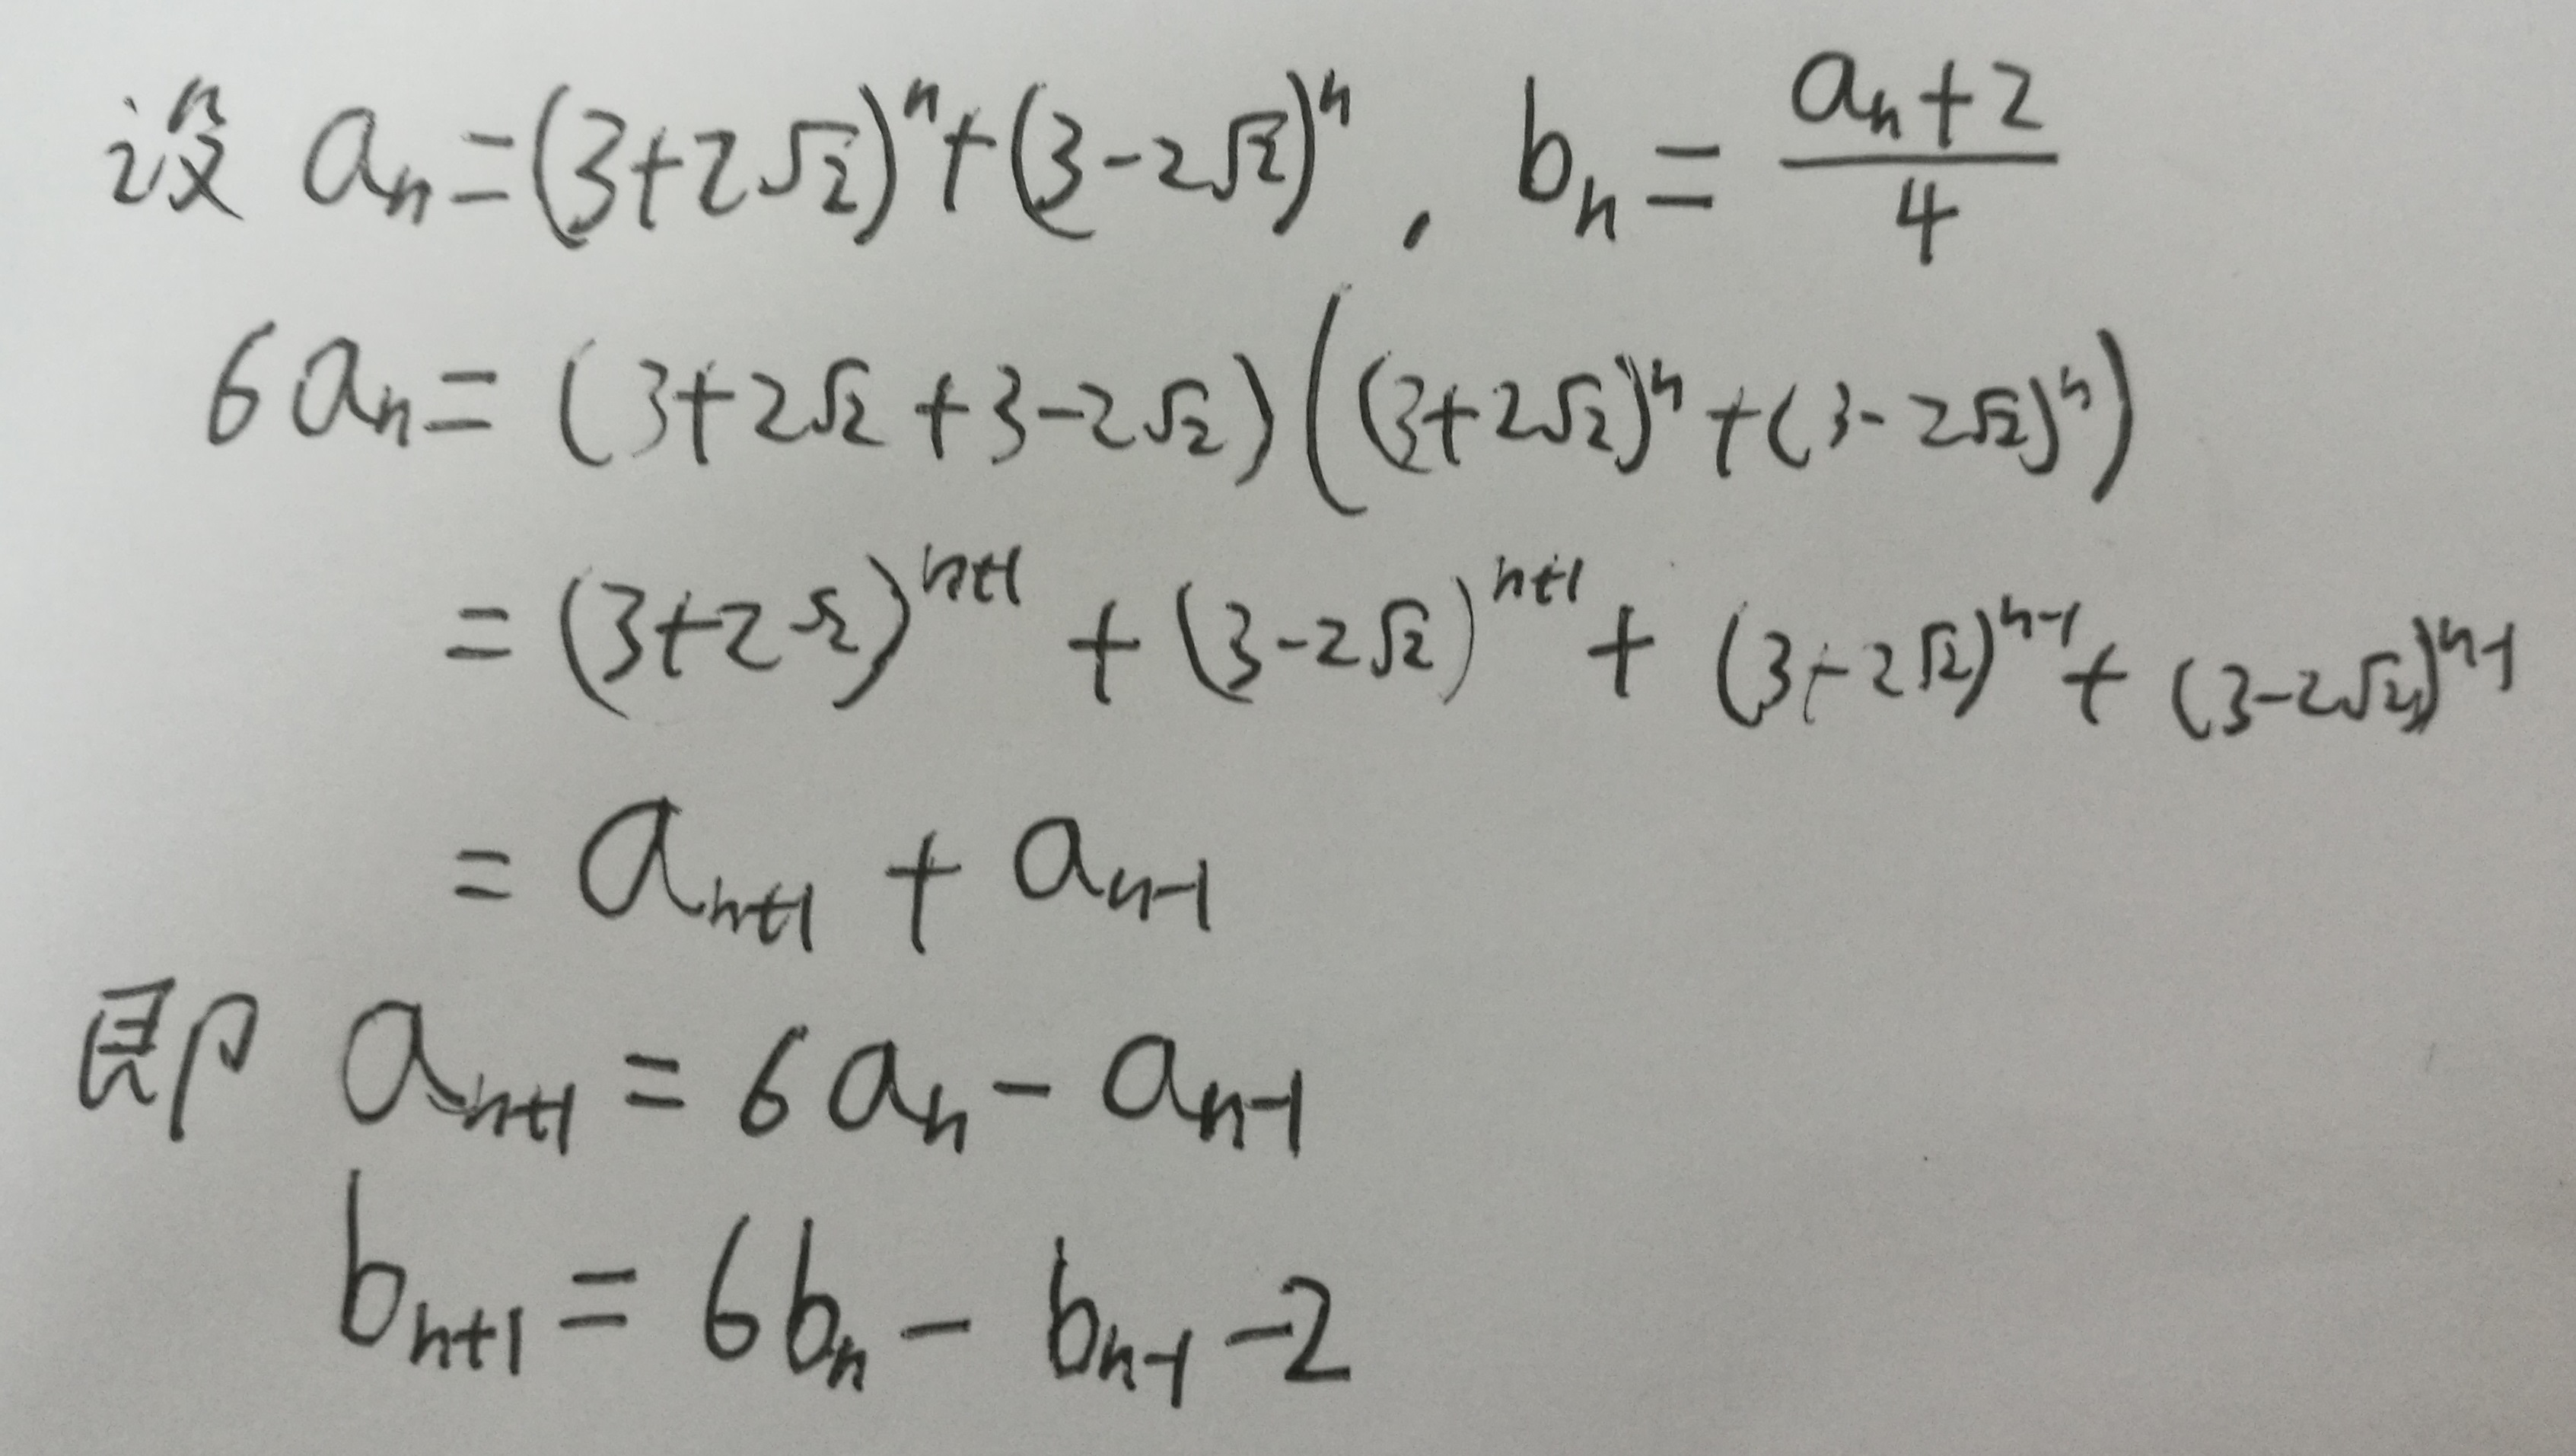 设 aₙ=(3+2√2)ⁿ+(3-2√2)ⁿ, bₙ=(aₙ+2)/4
6aₙ=(3+2√2+3-2√2)((3+2√2)ⁿ+(3-2√2)ⁿ)
=(3+2√2)ⁿ⁺¹+(3-2√2)ⁿ⁺¹+(3+2√2)ⁿ⁻¹+(3-2√2)ⁿ⁻¹
=aₙ₊₁+aₙ₋₁
即 aₙ₊₁=6aₙ-aₙ₋₁
bₙ₊₁=6bₙ-bₙ₋₁-2